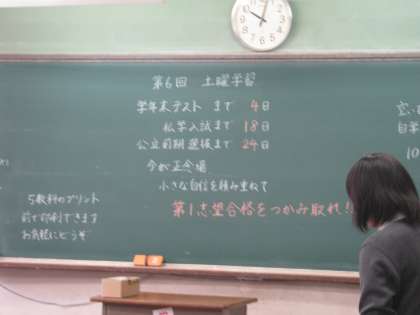 第6回 土曜学習
学年末テストまで 4日
私学入試まで 18日
公立前期選抜まで 24日
今が正念場
小さな自信を積み重ねて
第1志望合格をつかみ取れ!
5教科のプリント
前で印刷できます
お気軽にどうぞ
自筆
10